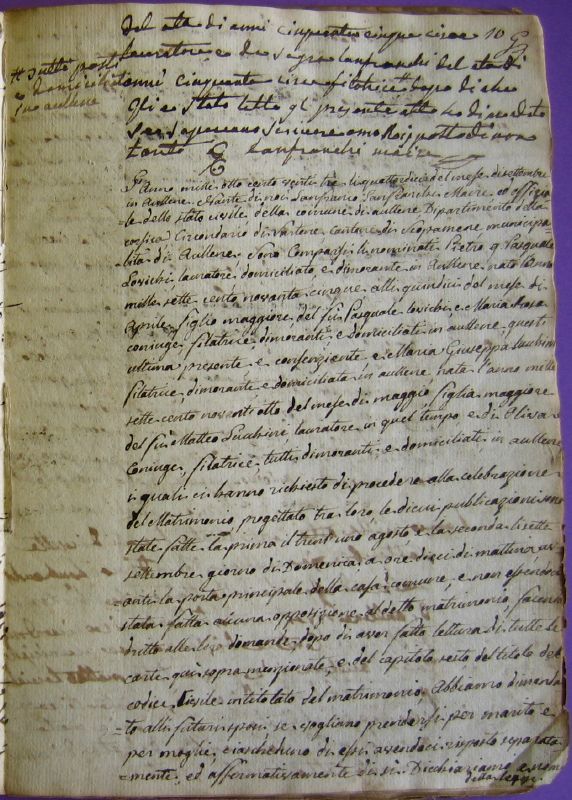 del età di anni cinquanta cinque circa 10
lauratore e de Segro Lanfranchi del età di
# tutti posti
e domiciliati
in aullene
anni cinquanta circa filatrice # dopo di che
gli è stato letto il presente atto
Saper ne scrivere
tanto Lanfranchi maire
L'Anno mille otto cento venti tre li quattordici del mese di settembre
in Aullene Avante di noi Lanfranco Lanfranchi Maire ed offizia
le dello stato civile della comune di aullene Dipartimento della
corsica Circondario di Sartene cantone di municipa
lità di Aullene Sono Comparsi li nominati Pietro q. Pasquale
Lovichi lauratore domiciliato e dimorante in Aullene nato l'anno
mille sette cento novanta cinque alli quindici del mese di
Aprile figlio maggiore del fù Pasquale Lovichi e Maria Rosa
coniugi filatrice dimoranti e domiciliati in aullene questi
ultima presente e consenziente e Maria Giuseppa Lucchini
filatrice dimorante e domiciliata in aullene nata l'anno mille
sette cento novanti otto del mese di maggio figlia maggiore
del fù Matteo Lucchini lauratore in quel tempo e di
Coniugi filatrice tutti dimoranti e domiciliati in aullene
i quali ci hanno richiesto di procedere alla celebrazione
del Matrimonio progettato tra loro le di cui publicazioni sono
state fatte la prima il trent uno agosto e la seconda li sette
settembre giorno di Domenica a ore dieci di mattina av
anti la porta principale della casa comune, e non essendo
stata fatta alcuna opposizione al detto matrimonio facendo
dritto alle lor domande dopo di aver fatto lettura di tutte le
carte qui sopra menzionate, e del capitolo sesto del titolo del
codice Civile intitolato del matrimonio Abbiamo dimanda
to alli futuri sposi se vogliano prendersi per marito e
per moglie, ciascheduno di essi avendoci risposto separata
mente, ed affermativamente di si Dichiariamo a nom
della legge